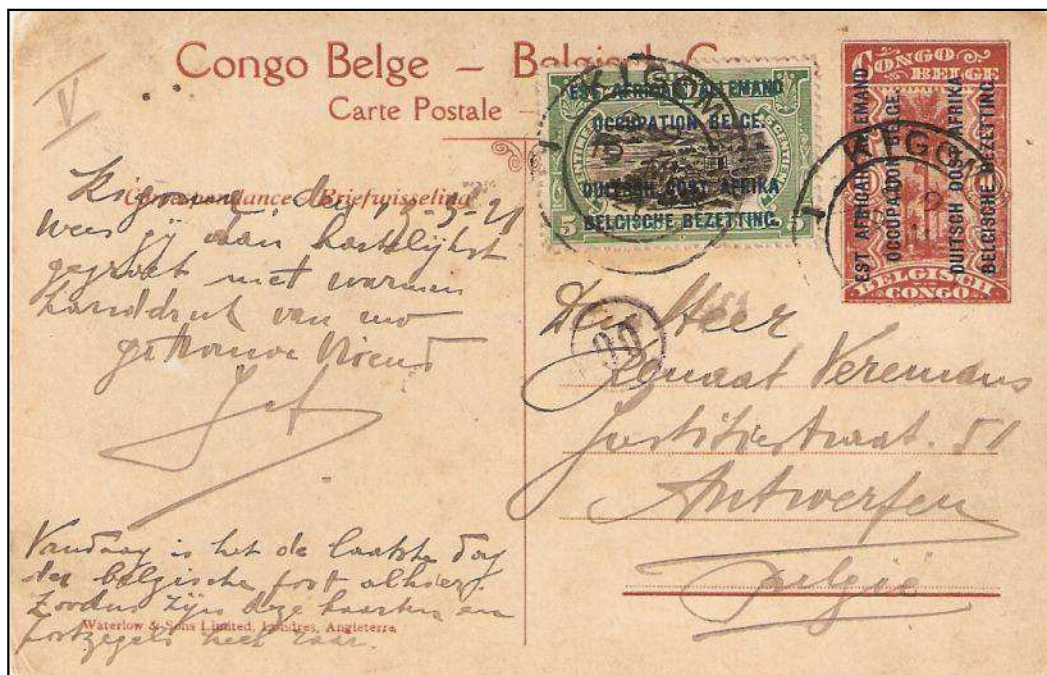 V
Congo Belge – Belgisch C
Carte Postale –
Correspondance - Briefwisseling
Kigoma, den 15-3-21
Wees jij dan hartelijkst
gegroet met warmen
handdruk van uw
getrouwe vriend
Jef
Vandaag is het de laatste dag
der belgische post alhier.
Zoodus zijn deze kaarten en
postzegels heel raar.
Waterlow & Sons Limited, Londres, Angleterre
EST AFRICAIN ALLEMAND
OCCUPATION BELGE.
DUITSCH OOST AFRIKA
BELGISCHE BEZETTING.
5 5
KIGOMA
CONGO
BELGE
EST AFRICAIN ALLEMAND
OCCUPATION BELGE
DUITSCH OOST AFRIKA
BELGISCHE BEZETTING
BELGISCH
CONGO
KIGOMA
Den Heer
Renaat Veremans
Justitiestraat. 51
Antwerpen
België